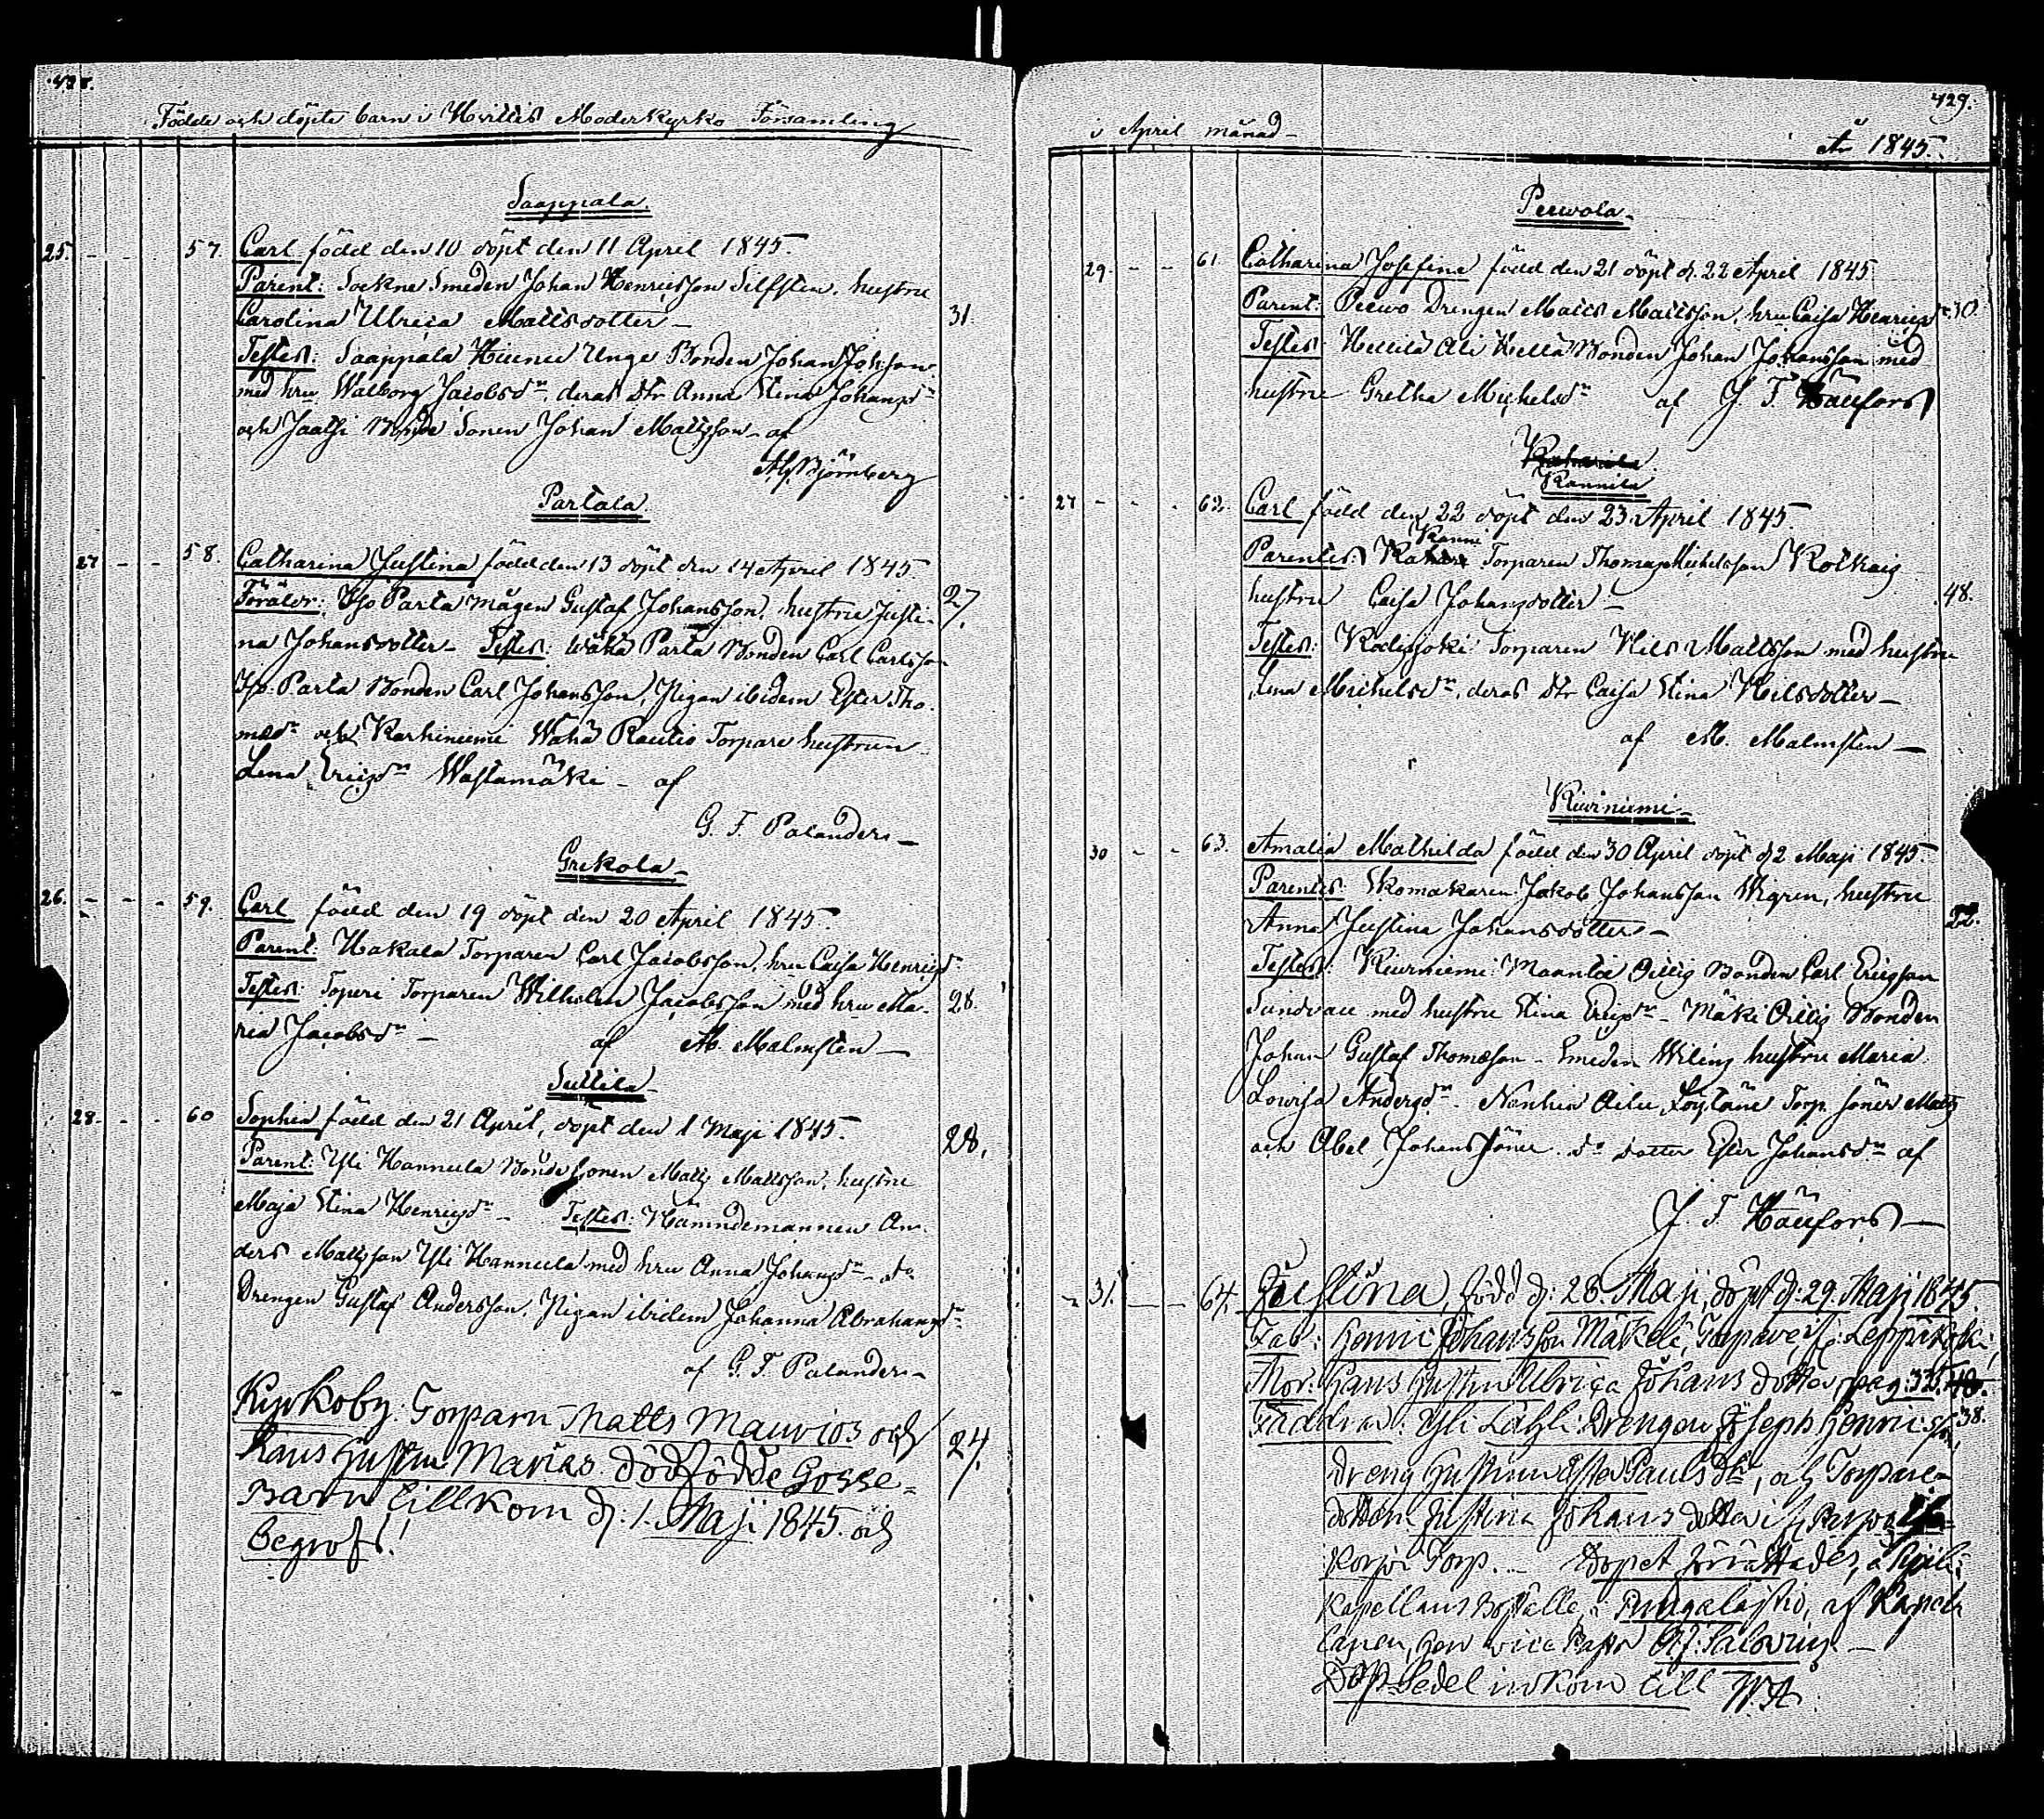 428.
Födde och döpte barn i Hvittis Moderkyrko Församling
Saappala.
25. 57. Carl född den 10 döpt den 11 April 1845.
Parent: Sockne Smeden Johan Henricsson Silfsten, hustru
Carolina Ulrica Mattsdotter 31.
Testes: Saappala Unge Bonden Johan Johsson
med hru Walborg Jacobsdr, deras dtr Anna Stina Johansdr
och Jaatsi Bonde Sonen Johan Mattsson - af
Björnberg
Partala.
27 58. Catharina Justina född den 13 döpt den 14 April 1845.
Föräldr: Iso Parta mågen Gustaf Johansson, hustru Justi- 27.
na Johansdotter - Testes: Wähä Parta Bonden Carl Carlsson
Iso Parta Bonden Carl Johansson, Pigan ibidem Ester Tho-
masdr och Karhiniemi Wähä Rautio Torpare hustrun
Lena Ericsdr Wastamäki - af
G. F. Palander
Grekola
26. 59. Carl född den 19 döpt den 20 April 1845.
Parent: Hakala Torparen Carl Jacobsson, hru Caisa Henricsdr.
Testes: Toperi Torparen Wilhelm Jacobsson med hru Ma- 28.
ria Jacobsdr - af M. Malmsten
Suttila
28. 60 Sophia född den 21 April, döpt den 1 Maji 1845. 28.
Parent: Yli Hannula Bonde Sonen Matts Mattsson, hustru
Maja Stina Henricsdr - Testes: Nämndemannen An-
ders Mattsson Yli Hannula med hru Anna Johansdr -
Drengen Gustaf Andersson, Pigan ibidem Johanna Abrahamsdr
af G. F. Palander
Kyrkoby: Torparn Matts Maurios och
hans Hustru Marias dödfödde Gosse- 24.
Barn tillkom d: 1. Maji 1845 och
Begrofs!
429.
i April månad År 1845.
Peewola
29. 61. Catharina Josefina född den 21 döpt d. 22 April 1845.
Parent: Peewo Drengen Matts Mattsson, hru Caisa Henricsdr 30.
Testes: Bonden Johan Johansson med
hustru Gretha Michelsdr af J. F. Häufors
Kannila
27 62. Carl född den 22 döpt den 23 April 1845.
Kanni
Parentes: Torparen Thomas Michelsson
hustru Caisa Johansdotter 48.
Testes: Kodisjoki Torparen Nils Mattsson med hustru
Lena Michelsdr, deras dtr Caisa Stina Nilsdotter
af M. Malmsten
Kiwiniemi
30 63. Amalia Mathilda född den 30 April döpt d 2 Maji 1845.
Parentes: Skomakaren Jakob Johansson Wigren, hustru
Anna Justina Johansdotter 22.
Testes: Bonden Carl Ericsson
med hustru Stina Ericsdr - Mäki Bonden
Johan Gustaf Thomasson - Smeden hustru Maria
Lovisa Andersdr. Torp söner Matts
och Abel Johanssöner. do dotter Ester Johansdr af
J. F. Häufors
31. 64. Justina, född d: 28. Maji, döpt d: 29. Maji 1845.
Far: Henric Johansson Märkelä, Torpare
Mor: Hans Hustru Ulrica Johansdotter pag: 38.
Faddrar: Yli Drengen Joseph Henricsson,
dreng Hustrun Ester Paulsdtr, och Torpare-
dottern Justina Johansdotter
Torp. Dopet förrättades, å
Kapellans Boställe, Pungalaitio, af Kapel-
lanen, Herr vice Pastor
Dop Sedel inkom till W.A.